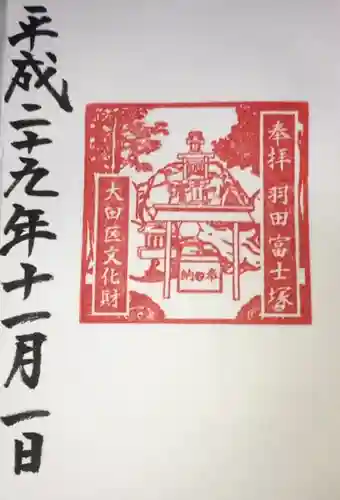 奉拝 羽田富士塚
奉納
大田区文化財
平成二十九年十一月一日